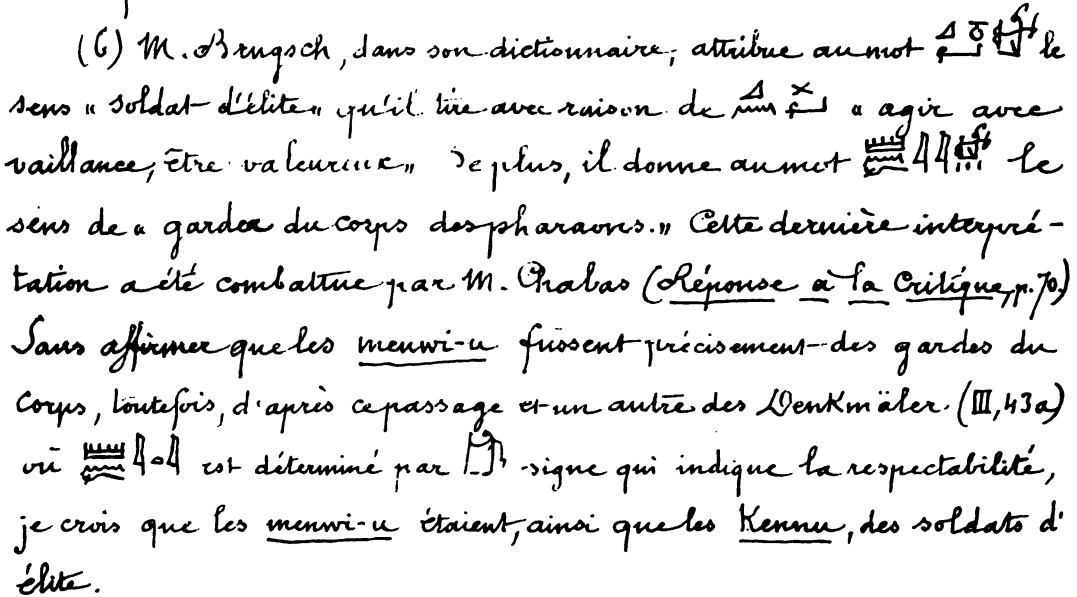 (6) M. Brugsch, dans son dictionnaire, attribue au mot le
sens « soldat d'élite » qu'il tire avec raison de « agir avec
vaillance, être valeureux » De plus, il donne au mot le
sens de « gardes du corps des pharaons. » Cette dernière interpré-
tation a été combattue par M. Chabas (Réponse à la Critique, p. 70.)
Sans affirmer que les menwi-u fussent précisement des gardes du
corps, toutefois, d'après ce passage et un autre des Denkmäler. (III, 43a)
où est déterminé par signe qui indique la respectabilité,
je crois que les menwi-u étaient, ainsi que les Kennu, des soldats d'
élite.